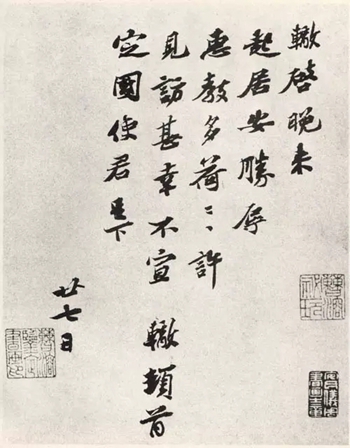 轍啓晚来
起居安勝辱
惠教多荷〻〻許
見訪甚幸不宣 轍頓首
定國使君足下
廿七日